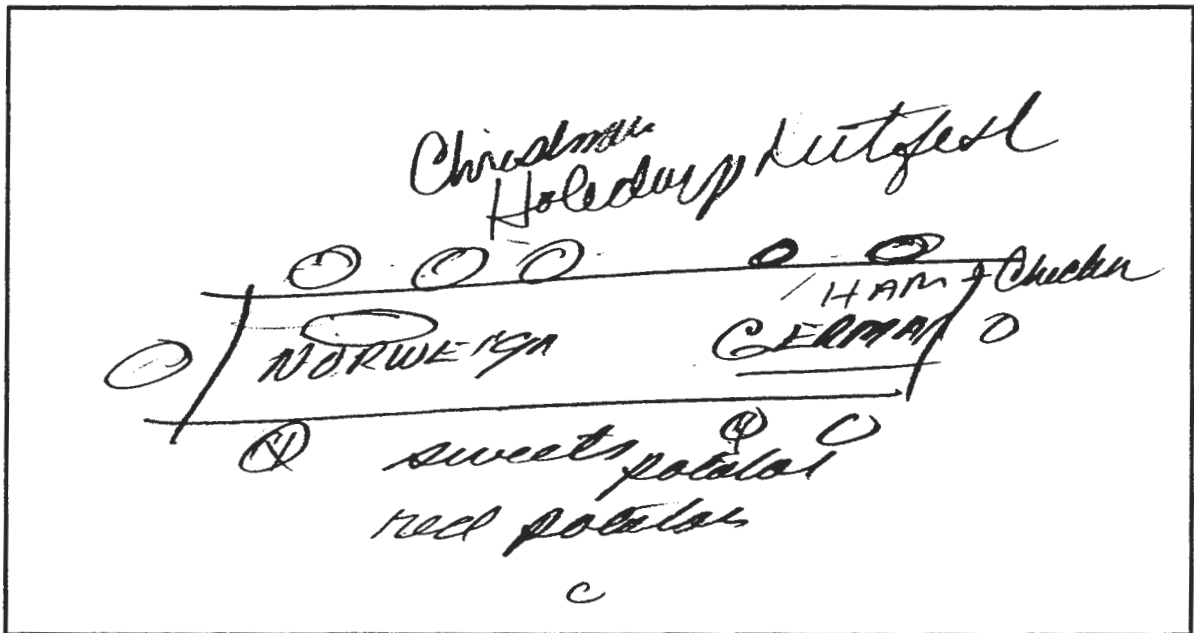 Christmas
Holiday Lutfest
HAM + Chicken
NORWEIGN GERMAN
sweets potatos
red potatos